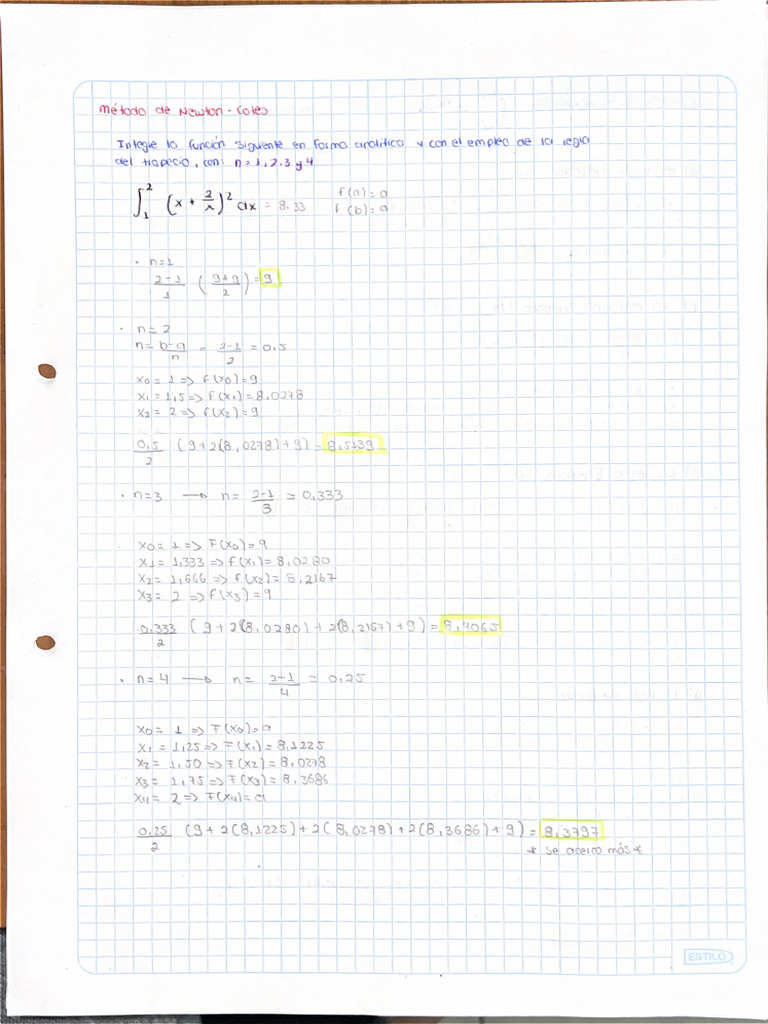 Método de Newton-Cotes
Integre la función siguiente en forma analítica y con el empleo de la regla
del trapecio, con: n=1,2,3 y 4
∫₁² (x + 2/x)² dx = 8,33
f(a)=9
f(b)=9
• n=1
2-1/1 (9+9/2) = 9
• n=2
n= b-a/n = 2-1/2 = 0.5
x0= 1 => f(x0)=9
x1= 1,5 => f(x1)=8,0278
x2= 2 => f(x2)=9
0,5/2 (9+2(8,0278)+9) = 8,5139
• n=3 → n= 2-1/3 = 0,333
x0= 1 => F(x0)=9
x1= 1,333 => f(x1)= 8,0280
x2= 1,666 => f(x2)= 8,2167
x3= 2 => f(x3)=9
0,333/2 (9+2(8,0280)+2(8,2167)+9) = 8,4065
• n=4 → n= 2-1/4 = 0,25
x0= 1 => F(x0)=9
x1 = 1,25 => F(x1)= 8,1225
x2= 1,50 => F(x2)= 8,0278
x3= 1,75 => F(x3)= 8,3686
x4= 2 => F(x4)= 9
0,25/2 (9+2(8,1225)+2(8,0278)+2(8,3686)+9) = 8,3797
* se acerco más *
ESTILO